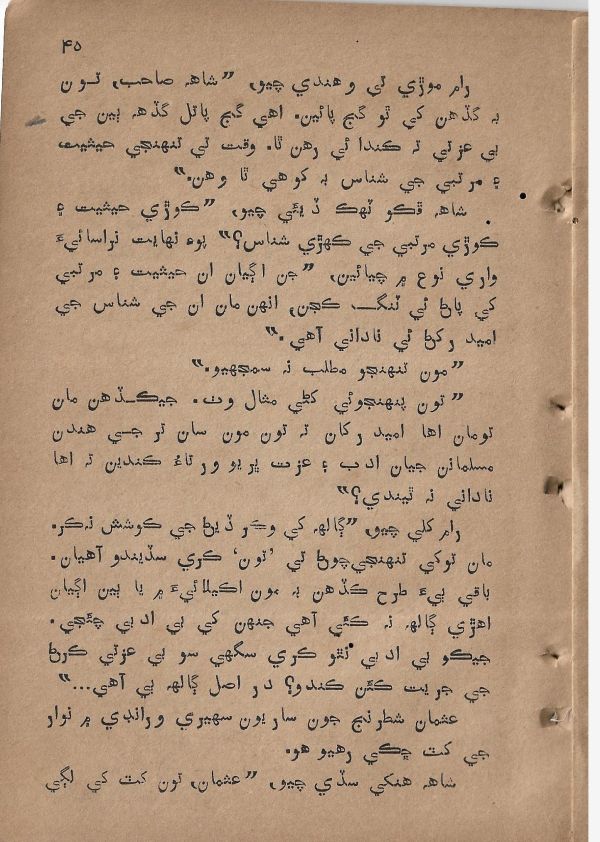 ۴۵
رام موڙي تي وهندي چيو، ”شاهہ صاحب، تون
بہ گڏهن کي ٿو گيج پائين. اهي گيج پاتل گڏهہ ٻين جي
بي عزتي تہ ڪندا ئي رهن ٿا. وقت تي تنهنجي حيثيت
۽ مرتبي جي شناس بہ کوهي ٿا وهن.“
شاهہ ڦڪو ٽهڪ ڏيئي چيو، ”ڪوڙي حيثيت ۽
ڪوڙي مرتبي جي ڪهڙي شناس؟“ پوءِ نهايت نراسائيءَ
واري نوع ۾ چيائين، ”جن اڳيان ان حيثيت ۽ مرتبي
کي پاڻ ئي ننگ ڪجي، انهن مان ان جي شناس جي
اميد رکڻ ئي ناداني آهي.“
”مون تنهنجو مطلب نہ سمجهيو.“
”تون پنهنجوئي کڻي مثال وٺ. جيڪڏهن مان
تومان اها اميد رکان تہ تون مون سان تر جي هندن
مسلمانن جيان ادب ۽ عزت ڀريو ورتاءُ ڪندين تہ اها
ناداني نہ ٿيندي؟“
رام کلي چيو، ”ڳالهہ کي وڪڙ ڏيڻ جي ڪوشش نہ ڪر.
مان توکي تنهنجي چوڻ تي ’تون‘ ڪري سڏيندو آهيان.
باقي ٻيءَ طرح ڪڏهن بہ مون اڪيلائيءَ ۾ يا ٻين اڳيان
اهڙي ڳالهہ نہ ڪئي آهي جنهن کي بي ادبي چئجي.
جيڪو بي ادبي نٿو ڪري سگهي سو بي عزتي ڪرڻ
جي جرئت ڪٿن ڪندو؟ در اصل ڳالهہ ٻي آهي...“
عثمان شطرنج جون ساريون سهيڙي ورانڊي ۾ نوار
جي کٽ ڇڪي رهيو هو.
شاهہ هنکي سڏي چيو، ”عثمان، تون کٽ کي لڳي